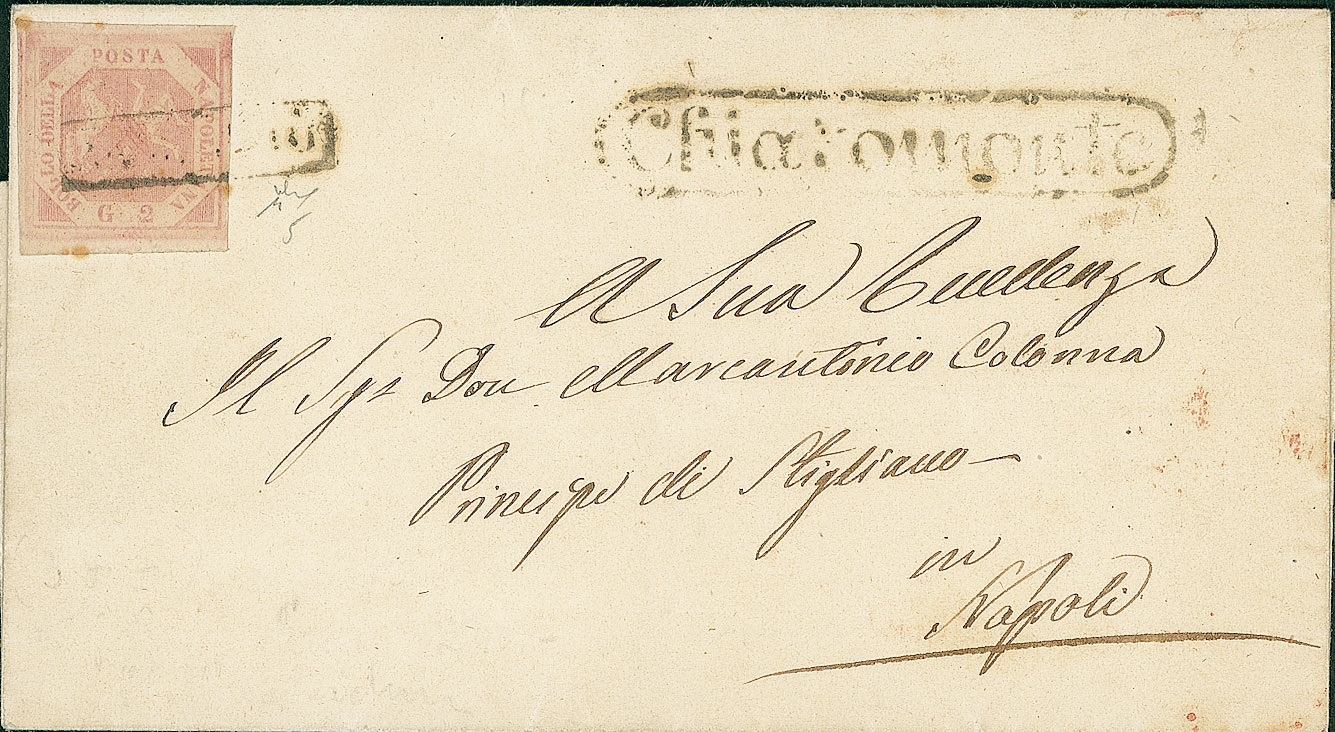 POSTA
BOLLO DELLA
NAPOLETANA
G 2
Chiaromonte
A Sua Eccellenza
Il Sgr Don Marcantonio Colonna
Principe di Stigliano
in
Napoli
5